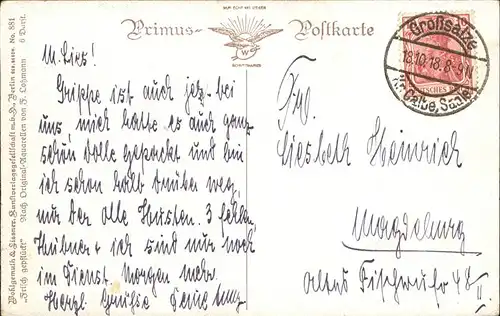 Primus-Postkarte
NUR ECHT MIT DIESER
W
SCHUTZMARKE
Wohlgemuth & Lissner, Kunstverlagsgesellschaft m.b.H. Berlin No. 881
"Frisch gepflückt" Nach Original-Aquarellen von F. Lohmann 6 Dess.
Großsalze
18.10.18. 8-9 V.
(Kr. Calbe, Saale)
M. Lies!
Grippe ist auch jetz. bei
uns, mich hatte es auch ganz
schön dolle gepackt und bin
ich schon halb drüber weg,
nur der olle Husten. 3 fehlen,
Hübner + ich sind nur noch
im Dienst. Morgen mehr.
Herzl. Grüße Deine
Frl.
Liesbeth Heinrich
Magdeburg
Altes Fischerufer 48 II